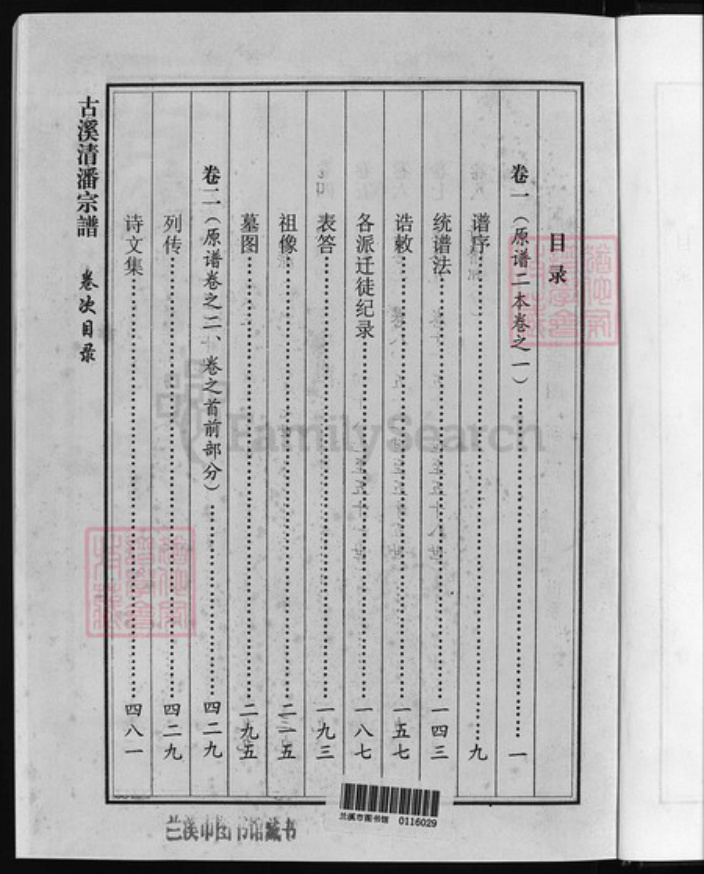 目录
卷一（原谱二本卷之一）……一
谱序……九
统谱法……一四三
诰敕……一五七
各派迁徙纪录……一八七
表答……一九三
祖像……二一五
墓图……二九五
卷二（原谱卷之二、卷之首前部分）……四二九
列传……四二九
诗文集……四八一
古溪清潘宗譜 卷次目录
兰溪市图书馆藏书
兰溪市图书馆 0116029
FamilySearch